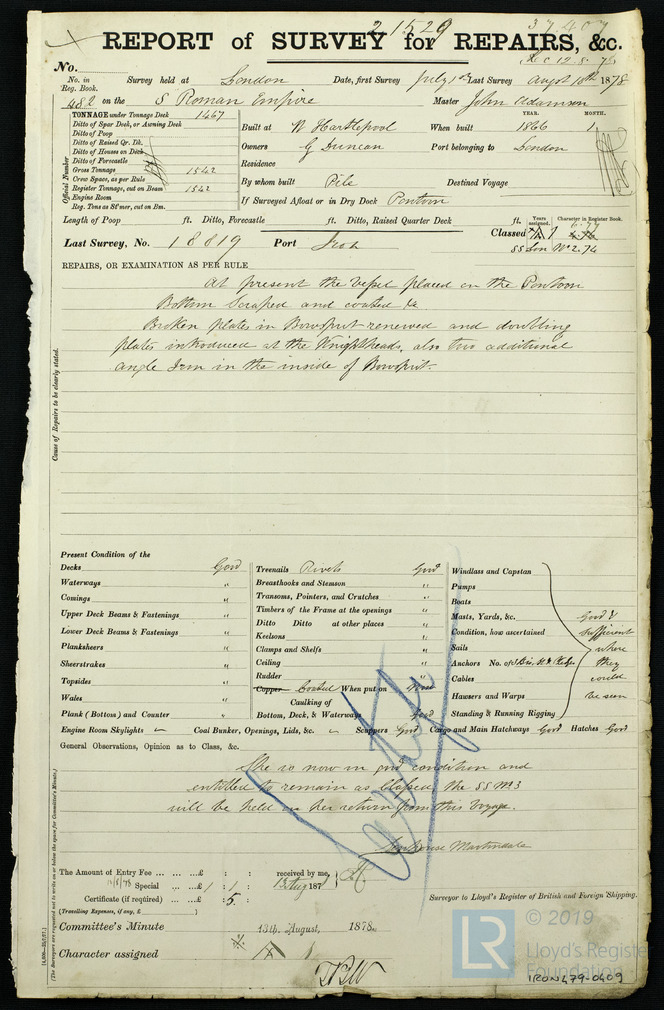 21529
37407
REPORT of SURVEY for REPAIRS, &c.
Rec 12.8.78
No.
No. in Reg. Book. Survey held at London Date, first Survey July 1st Last Survey Augt 10th 1878
482 on the S Roman Empire Master John Adamson
TONNAGE under Tonnage Deck 1467
Ditto of Spar Deck, or Awning Deck
Ditto of Poop
Ditto of Raised Qr. Dk.
Ditto of Houses on Deck
Ditto of Forecastle
Gross Tonnage 1542
Crew Space, as per Rule
Register Tonnage, cut on Beam 1542
Engine Room
Reg. Tons as St'mer, cut on Bm.
Official Number
YEAR. MONTH.
Built at W Hartlepool When built 1866 1
Owners G Duncan Port belonging to London
Residence
By whom built Pile Destined Voyage
If Surveyed Afloat or in Dry Dock Pontoon
Length of Poop ft. Ditto, Forecastle ft. Ditto, Raised Quarter Deck ft.
Years assigned. Character in Register Book.
Classed A 1 6.77
SS Lon No 2.74
Last Survey, No. 18819 Port Iron
REPAIRS, OR EXAMINATION AS PER RULE
At present the Vessel placed on the Pontoon
Bottom Scraped and coated &c
Broken plates in Bowsprit renewed and doubling
plates introduced at the Knightheads, also two additional
angle Iron in the inside of Bowsprit.
Cause of Repairs to be clearly stated.
Present Condition of the
Decks Good
Waterways "
Comings "
Upper Deck Beams & Fastenings "
Lower Deck Beams & Fastenings "
Planksheers "
Sheerstrakes "
Topsides "
Wales "
Plank (Bottom) and Counter "
Treenails Rivets Good
Breasthooks and Stemson "
Transoms, Pointers, and Crutches "
Timbers of the Frame at the openings "
Ditto Ditto at other places "
Keelsons "
Clamps and Shelfs "
Ceiling "
Rudder "
Copper Coated When put on
Caulking of
Bottom, Deck, & Waterways Good
Windlass and Capstan
Pumps
Boats
Masts, Yards, &c.
Condition, how ascertained
Sails
Anchors No. of
Cables
Hawsers and Warps
Standing & Running Rigging
Good &
Sufficient
where
they
could
be seen
Engine Room Skylights Coal Bunker, Openings, Lids, &c. Scuppers Good Cargo and Main Hatchways Good Hatches Good
General Observations, Opinion as to Class, &c.
She is now in good condition and
entitled to remain as Classed the SS No 3
will be held on her return from this Voyage.
Martindale
The Amount of Entry Fee £ : : received by me,
Special £ 1 : 1 : 12 Aug 187
Certificate (if required) : 5 :
(Travelling Expenses, if any, £ )
Surveyor to Lloyd's Register of British and Foreign Shipping.
Committee's Minute 13th August, 1878.
Character assigned A 1
(The Surveyors are requested not to write on or below the space for Committee's Minute.)
LR
© 2019
Lloyd's Register
Foundation
IRON479-0409